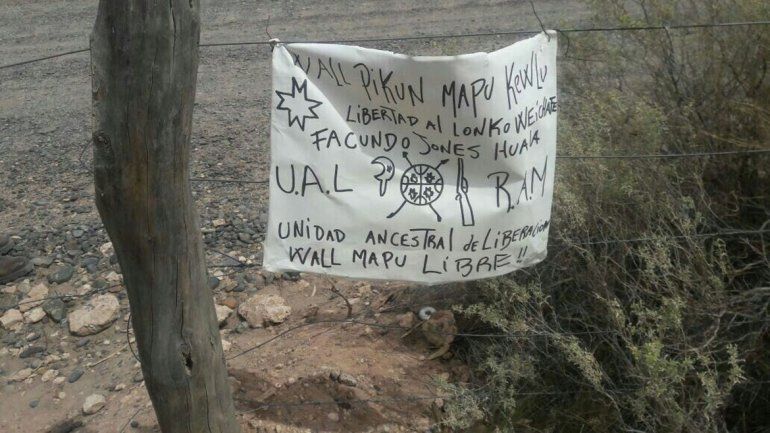 WALL PIKUN MAPU KEWLU
LIBERTAD AL LONKO WEICHAFE
FACUNDO JONES HUALA
U.A.L R.A.M
UNIDAD ANCESTRAL de LIBERACION
WALL MAPU LIBRE !!